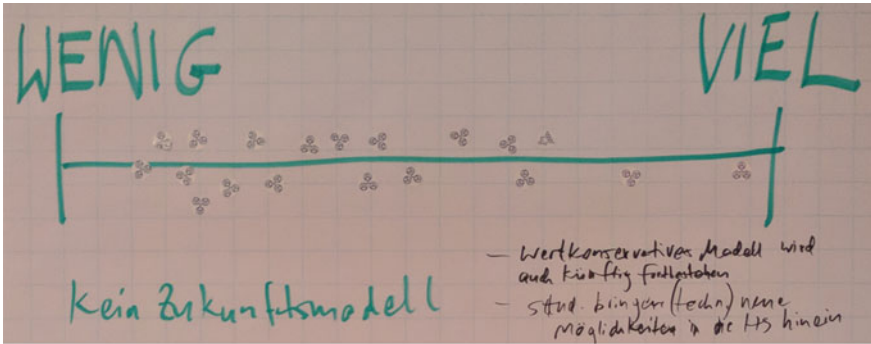 WENIG VIEL
Kein Zukunftsmodell
– Wertkonservatives Modell wird
auch künftig fortbestehen
– Stud. bringen (techn) neue
Möglichkeiten in die HS hinein